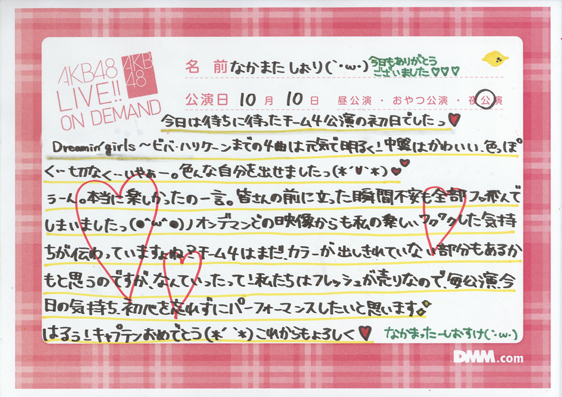 AKB48
LIVE!!
ON DEMAND
AKB
48
名 前 なかまた しおり(`･ω･´)
今日もありがとう
ございました♡♡♡
公演日 10 月 10 日 昼公演・おやつ公演・夜公演
今日は待ちに待ったチーム4公演の初日でしたっ♥
Dreamin'girls～ビバ・ハリケーンまでの4曲は元気で明るく!中盤はかわいい、色っぽ
く…切なく…いやぁー。色んな自分を出せましたっ(*´∀`*)♥
うーん。本当に楽しかったの一言。皆さんの前に立った瞬間不安も全部フッ飛んで
しまいましたっ(●^ω^●)ノオンデマンドの映像からも私の楽しいワクワクした気持
ちが伝わっていますよね?チーム4はまだ、カラーが出しきれていない部分もあるか
もと思うのですが、なんていったって!私たちはフレッシュが売りなので、毎公演、今
日の気持ち、初心を忘れずにパフォーマンスしたいと思います。
はるぅ!キャプテンおめでとう(*´`*)これからもよろしく♥
なかまったーしおすけ(`･ω･´)
DMM.com